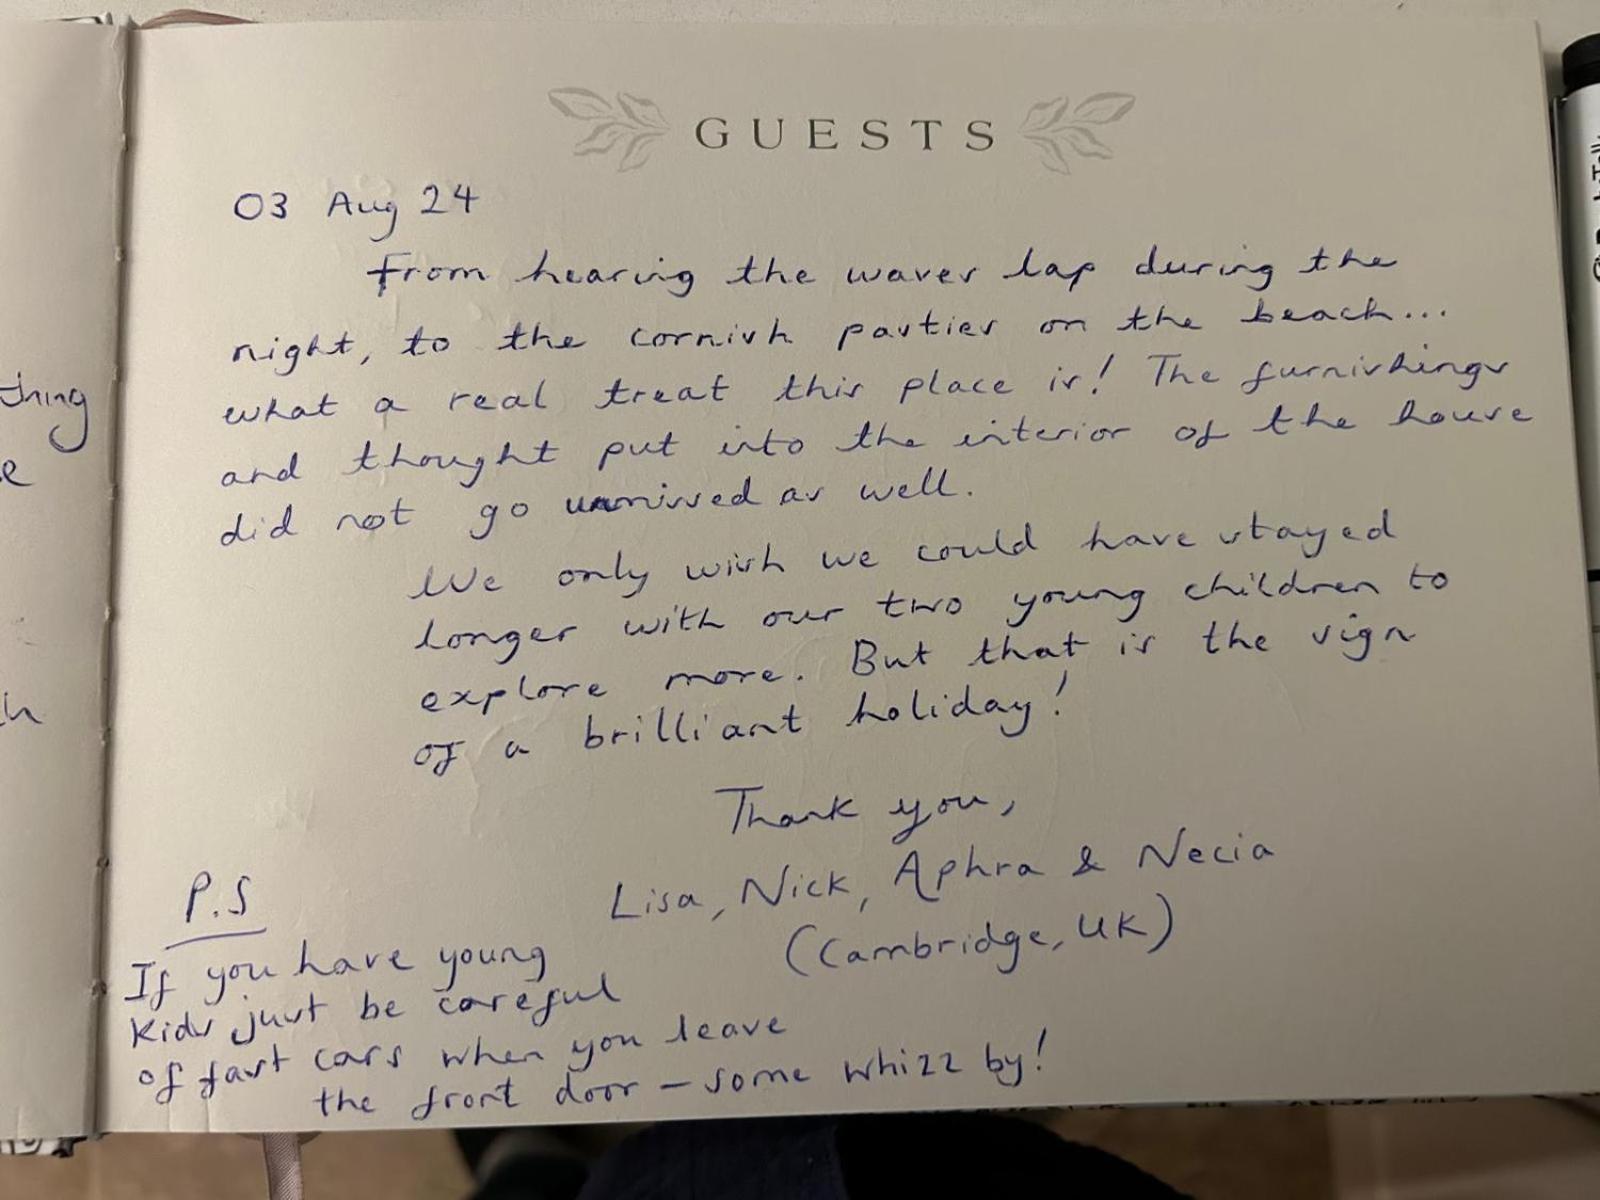 GUESTS
03 Aug 24
From hearing the waves lap during the
night, to the cornish parties on the beach...
what a real treat this place is! The furnishings
and thought put into the interior of the house
did not go unmissed as well.
We only wish we could have stayed
longer with our two young children to
explore more. But that is the sign
of a brilliant holiday!
Thank you,
Lisa, Nick, Aphra & Necia
(Cambridge, UK)
P.S
If you have young
kids just be careful
of fast cars when you leave
the front door - some whizz by!
thing